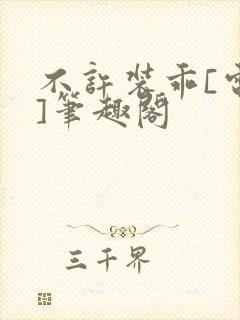 不許裝乖[電
]筆趣閣
三千界